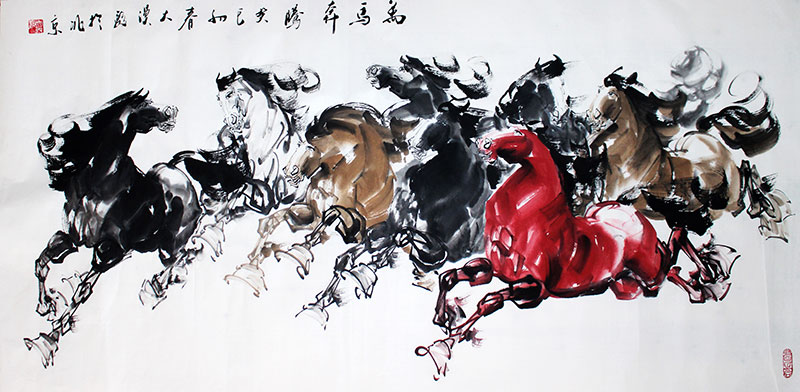 萬馬奔騰癸巳初春大漠於北京